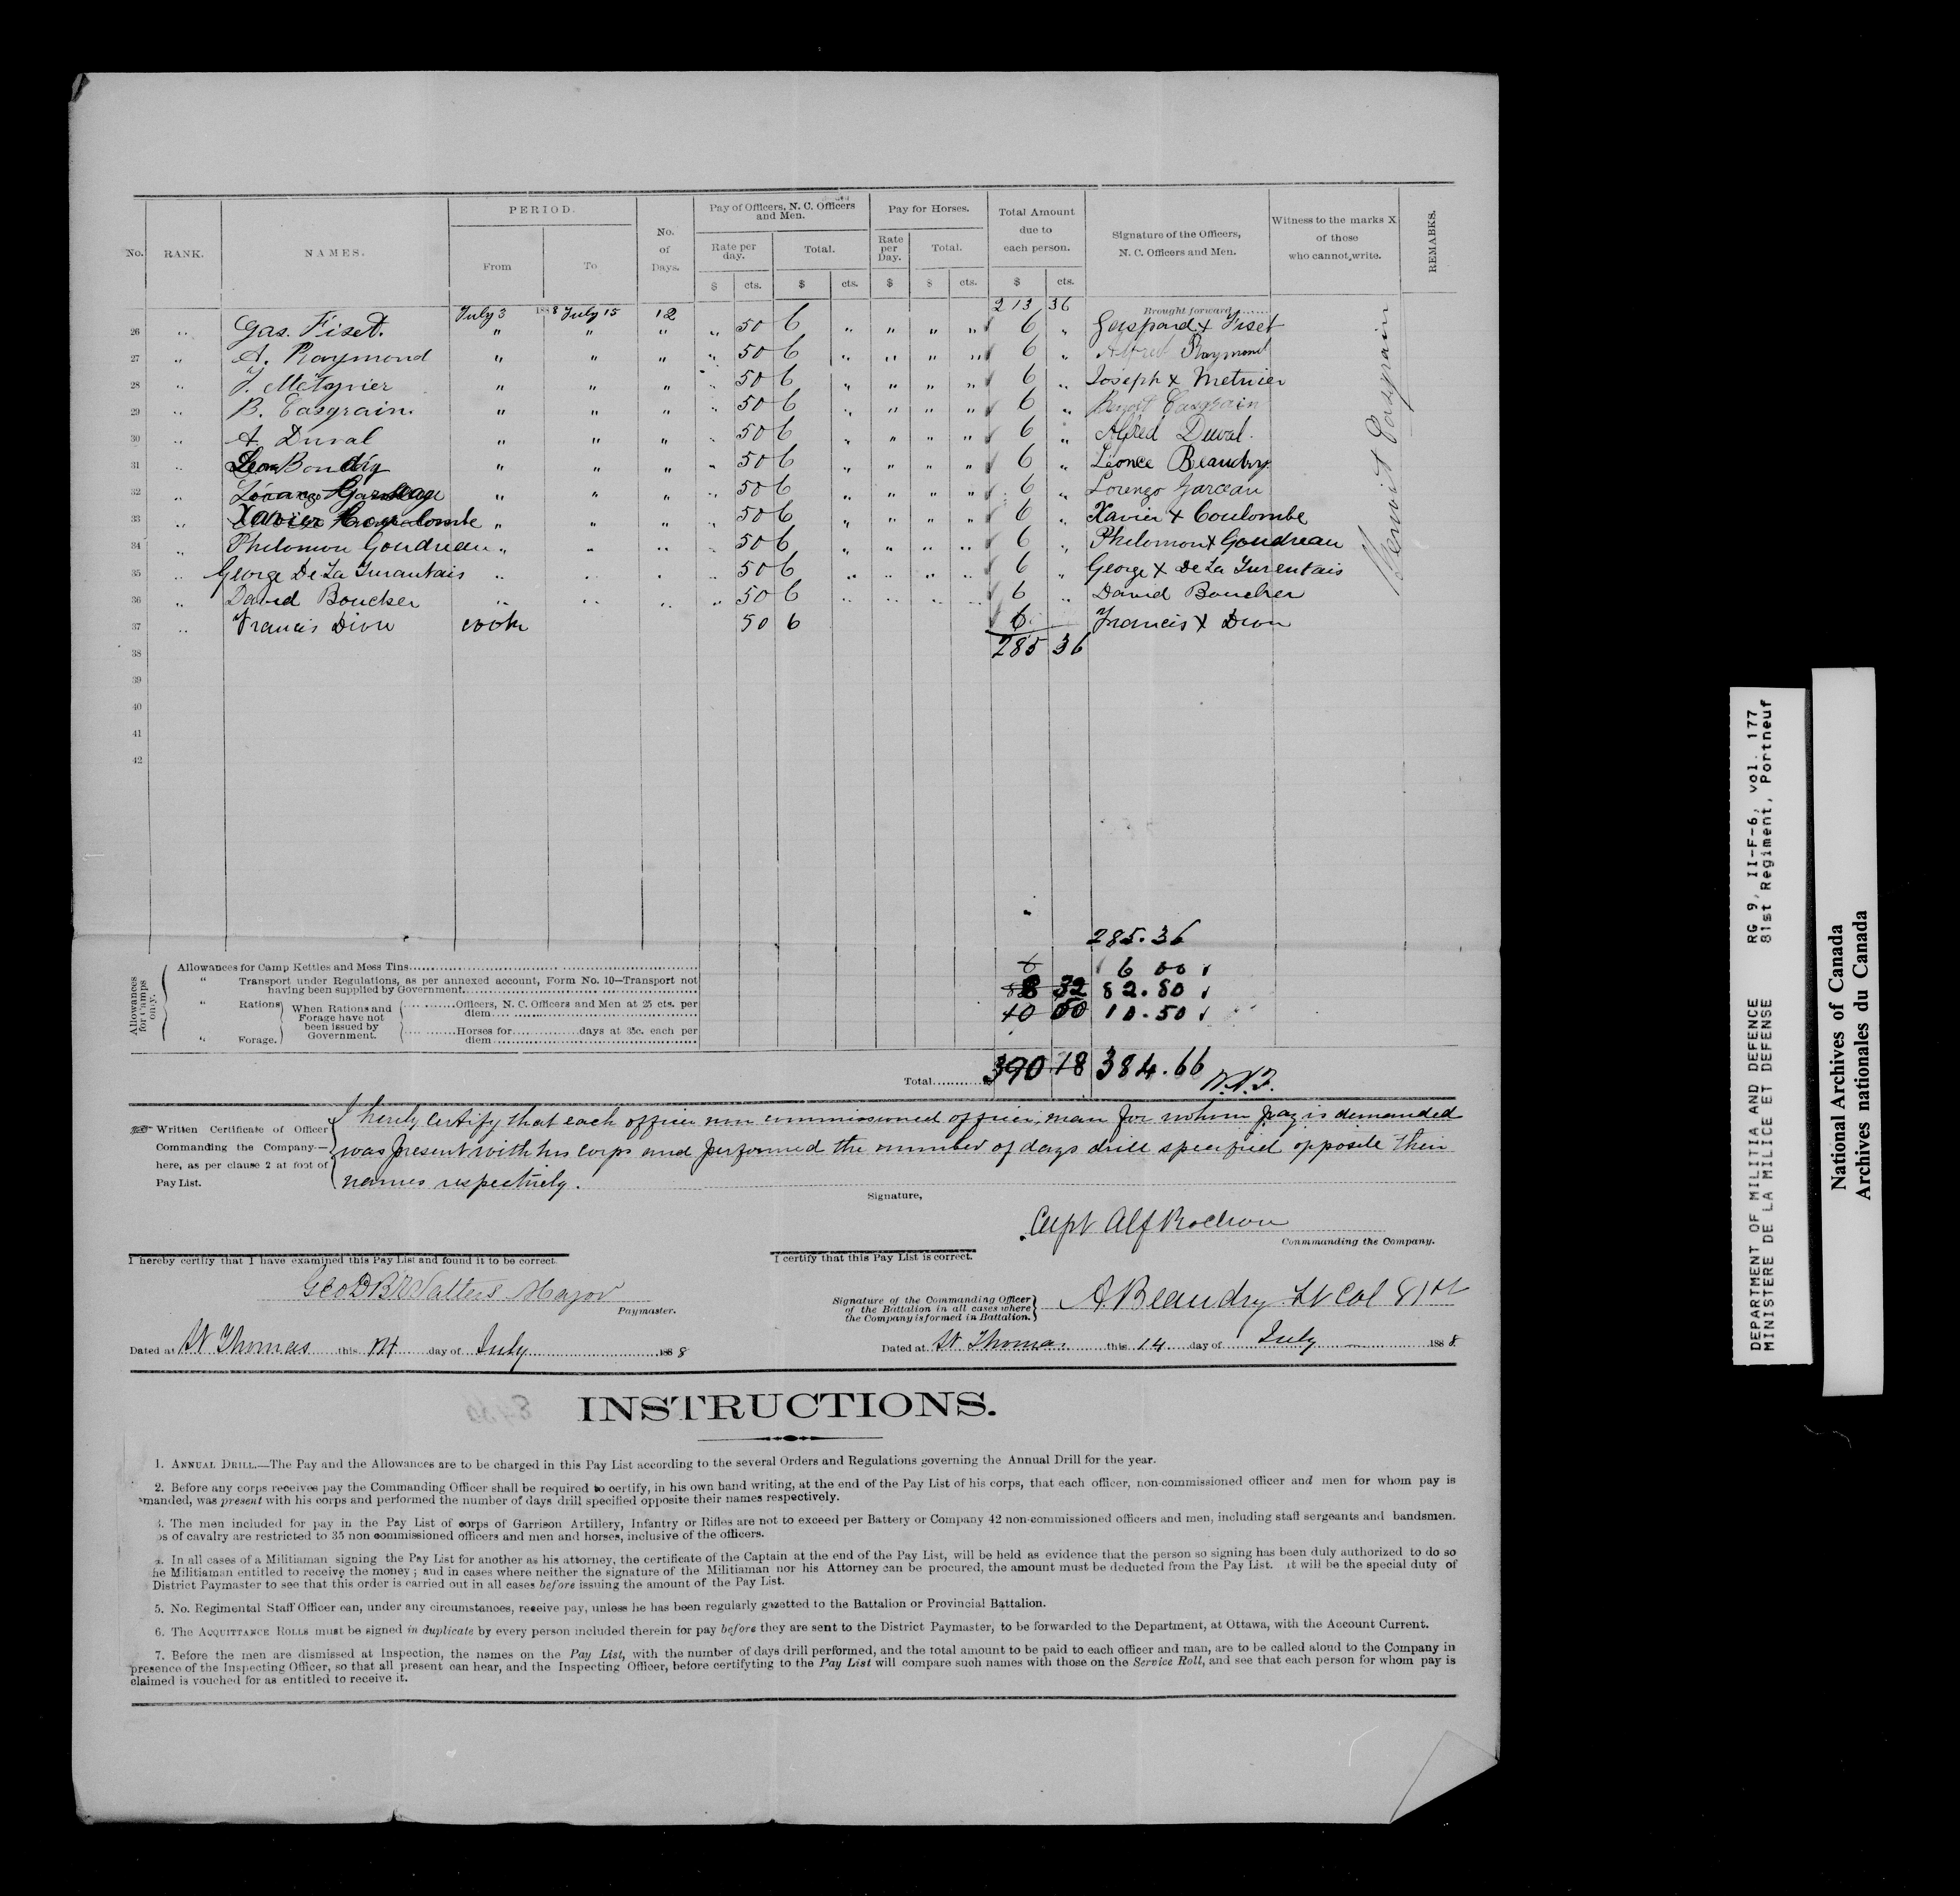 No. RANK. NAMES. PERIOD. From To No. of Days. Pay of Officers, N. C. Officers and Men. Rate per day. $ cts. Total. $ cts. Pay for Horses. Rate per Day. $ Total. $ cts. Total Amount due to each person. $ cts. Signature of the Officers, N. C. Officers and Men. Witness to the marks X of those who cannot write. REMARKS.
July 3 1888 July 15 12 213 36 Brought forward
26 " Gas. Fiset. " " " " 50 6 " " " " 6 " Gaspard + Fiset
27 " A. Raymond " " " " 50 6 " " " " 6 " Alfred Raymond
28 " J. Metgvier " " " " 50 6 " " " " 6 " Joseph x Metnier
29 " B. Casgrain. " " " " 50 6 " " " " 6 " Benoit Casgrain
30 " A. Duval " " " " 50 6 " " " " 6 " Alfred Duval.
31 " " " " " 50 6 " " " " 6 " Léonce Beaudry
32 " " " " " 50 6 " " " " 6 " Lorenzo Garceau
33 " Xavier " " " " 50 6 " " " " 6 " Xavier + Coulombe
34 " Philomon Goudreau " " " " 50 6 " " " " 6 " Philomon x Goudreau
35 " George De La Durantais " " " " 50 6 " " " " 6 " George x De La Durentais
36 " David Boucher " " " " 50 6 " " " " 6 " David Boucher
37 " Francis Dion cook 50 6 6 Francis x Dion
Benoit Casgrain
38 285 36
39
40
41
42
285.36
Allowances for Camps only.
Allowances for Camp Kettles and Mess Tins 6 6 00
" Transport under Regulations, as per annexed account, Form No. 10—Transport not having been supplied by Government 88 32 82.80
" Rations When Rations and Forage have not been issued by Government. Officers, N. C. Officers and Men at 25 cts. per diem 10 50 10.50
" Forage. Horses for days at 35c. each per diem
Total 390 18 384.66
Written Certificate of Officer Commanding the Company—here, as per clause 2 at foot of Pay List.
I hereby certify that each officer non commissioned officer, man for whom pay is demanded
was present with his corps and performed the number of days drill specified opposite their
names respectively.
Signature,
Capt Alf Rochon
Conmmanding the Company.
I hereby certify that I have examined this Pay List and found it to be correct.
I certify that this Pay List is correct.
Major
Paymaster.
Signature of the Commanding Officer of the Battalion in all cases where the Company is formed in Battalion.
A. Beaudry Lt Col 81st
Dated at St Thomas this 14 day of July 1888
Dated at St Thomas this 14 day of July 1888
INSTRUCTIONS.
1. ANNUAL DRILL.—The Pay and the Allowances are to be charged in this Pay List according to the several Orders and Regulations governing the Annual Drill for the year.
2. Before any corps receives pay the Commanding Officer shall be required to certify, in his own hand writing, at the end of the Pay List of his corps, that each officer, non-commissioned officer and men for whom pay is
manded, was present with his corps and performed the number of days drill specified opposite their names respectively.
3. The men included for pay in the Pay List of corps of Garrison Artillery, Infantry or Rifles are not to exceed per Battery or Company 42 non-commissioned officers and men, including staff sergeants and bandsmen.
ps of cavalry are restricted to 35 non commissioned officers and men and horses, inclusive of the officers.
4. In all cases of a Militiaman signing the Pay List for another as his attorney, the certificate of the Captain at the end of the Pay List, will be held as evidence that the person so signing has been duly authorized to do so
he Militiaman entitled to receive the money ; and in cases where neither the signature of the Militiaman nor his Attorney can be procured, the amount must be deducted from the Pay List. It will be the special duty of
District Paymaster to see that this order is carried out in all cases before issuing the amount of the Pay List.
5. No. Regimental Staff Officer can, under any circumstances, receive pay, unless he has been regularly gazetted to the Battalion or Provincial Battalion.
6. The ACQUITTANCE ROLLS must be signed in duplicate by every person included therein for pay before they are sent to the District Paymaster, to be forwarded to the Department, at Ottawa, with the Account Current.
7. Before the men are dismissed at Inspection, the names on the Pay List, with the number of days drill performed, and the total amount to be paid to each officer and man, are to be called aloud to the Company in
presence of the Inspecting Officer, so that all present can hear, and the Inspecting Officer, before certifyting to the Pay List will compare such names with those on the Service Roll, and see that each person for whom pay is
claimed is vouched for as entitled to receive it.
DEPARTMENT OF MILITIA AND DEFENCE RG 9, II-F-6, vol. 177
MINISTERE DE LA MILICE ET DEFENSE 81st Regiment, Portneuf
National Archives of Canada
Archives nationales du Canada